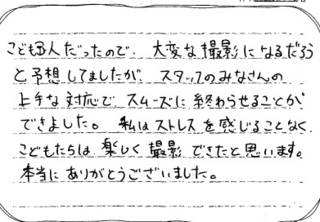 こども3人だったので、大変な撮影になるだろう
と予想してましたが、スタッフのみなさんの
上手な対応で、スムーズに終わらせることが
できました。私はストレスを感じることなく、
こどもたちは、楽しく撮影できたと思います。
本当にありがとうございました。